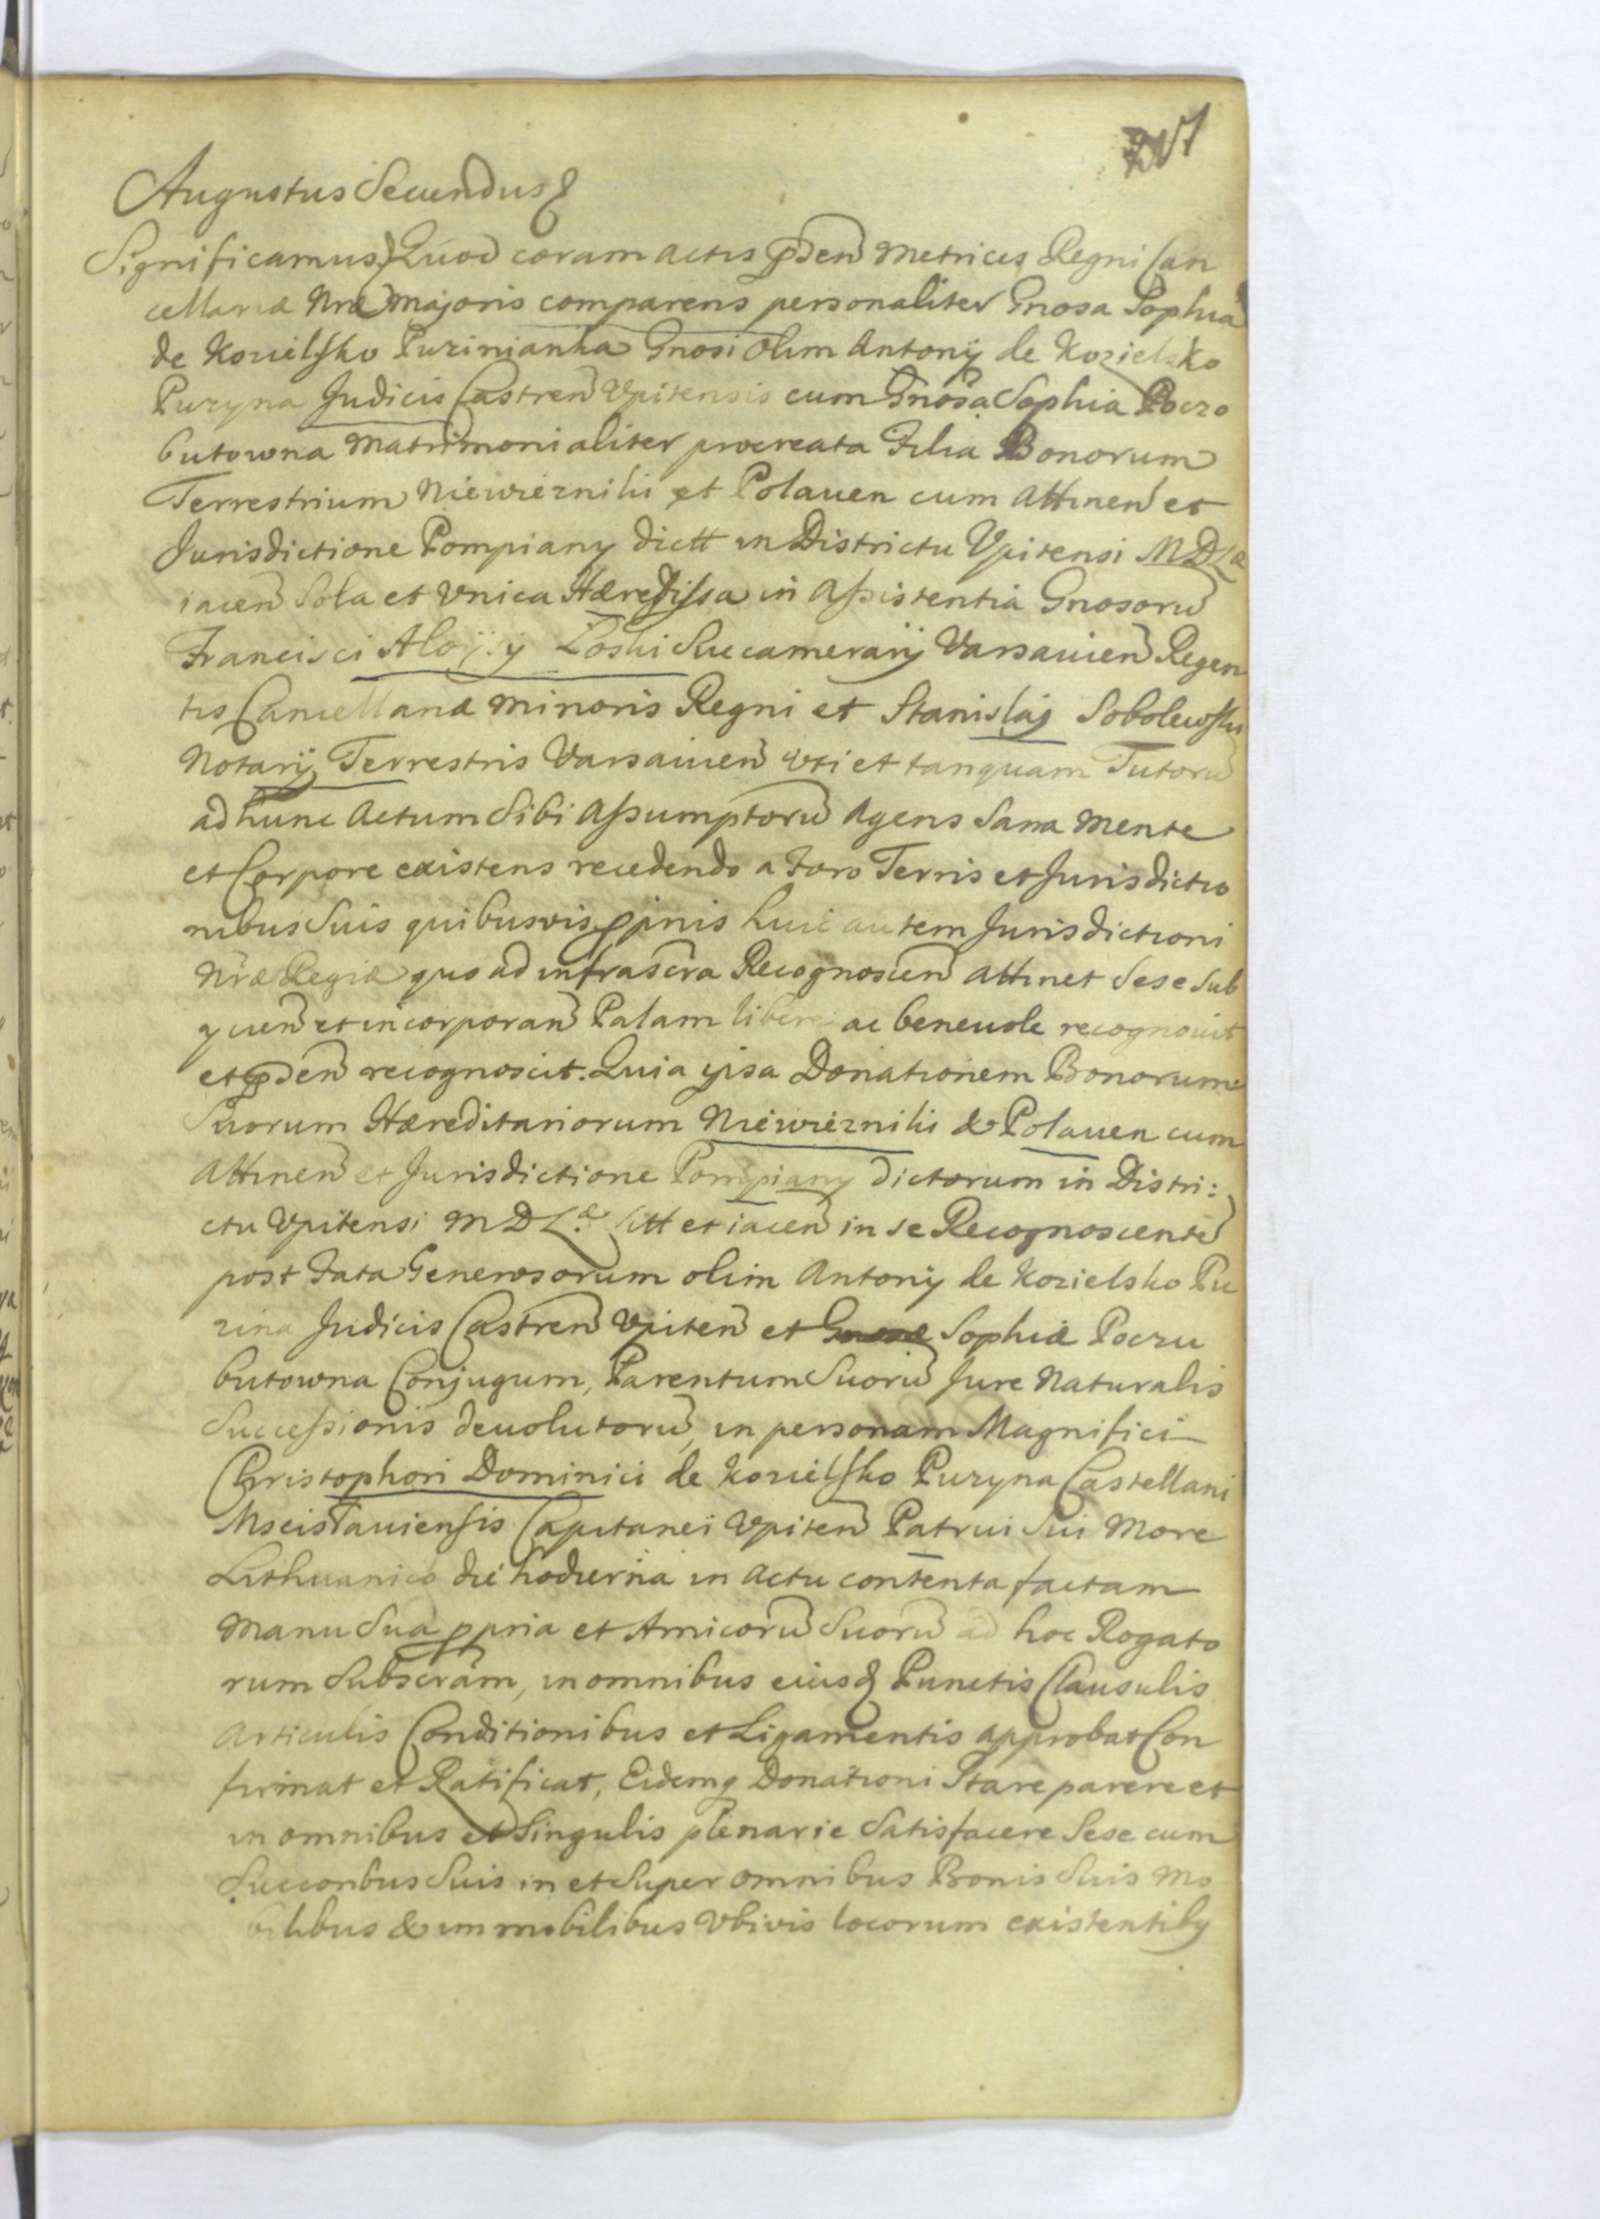 Augustus Secundus
Significamus Quod coram actis pñden Metrices Regni Can
cellariæ Nræ Majoris comparens personaliter Gnosa Sophia
de Kozielsko Puzinianka Gnosi Olim Antonij de Kozielsko
Puzyna Judicis Castren Upitensis cum Gnosa Sophia Poczo
butowna Matrimonialiter procreata Filia Bonorum
Terrestrium Niewiezniki et Polauen cum Attinen et
Jurisdictione Pompiany dictt in Districtu Upitensi M D Læ
iacen Sola et Unica Hæredissa in Assistentia Gnosorũ
Francisci Aloijsij Loski Succamerarij Varsauien Regen
tis Cancellariæ Minoris Regni et Stanislaj Sobolewski
Notarij Terrestris Varsauien Uti et tanquam Tutorũ
ad hunc Actum Sibi Assumptorũ Agens Sana Mente
et Corpore existens recedendo a Foro Terris et Jurisdictio
nibus Suis quibusvis ppriis huic autem Jurisdictioni
Nræ Regiæ quo ad infrascra Recognoscen attinet Sese Sub
ycien et incorporan Palam libere ac beneuole recognouit
et pñden recognoscit. Quia ipsa Donationem Bonorum
Suorum Hæreditariorum Niewiezniki & Polauen cum
Attinen et Jurisdictione Pompiany dictorum in Distri:
ctu Upitensi M D Læ. sitt et iacen in se Recognoscentẽ
post Fata Generosorum olim Antonij de Kozielsko Pu
zina Judicis Castren Upiten et Sophiæ Poczu
butowna Conjugum, Parentum Suorũ Jure Naturalis
Successionis deuolutorũ, in personam Magnifici
Christophori Dominici de Kozielsko Puzyna Castellani
Mscislauiensis Capitanei Upiten Patrui Sui More
Lithuanico die hodierna in Actu contenta factam
Manu Sua ppria et Amicorũ Suorũ ad hoc Rogato
rum Subscram, in omnibus eiusq Punctis Clausulis
Articulis Conditionibus et Ligamentis approbat Con
firmat et Ratificat, Eidemq Donationi Stare parere et
in omnibus et Singulis plenarie Satisfacere Sese cum
Succoribus Suis in et Super omnibus Bonis Suis Mo
bilibus & immobilibus Ubivis locorum existentibq